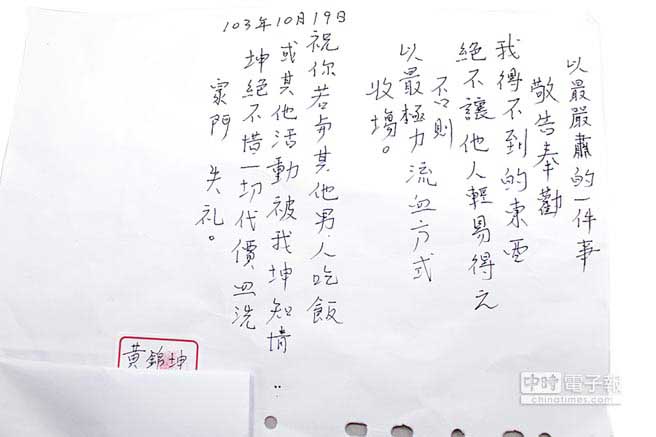 以最嚴肅的一件事
敬告奉勸
我得不到的東西
絕不讓他人輕易得之
否則
以最極力流血方式
收場。
祝你若与其他男人吃飯
或其他活動被我坤知情..
坤絕不惜一切代價血洗
家門 失礼。
103年10月19日
黃錦坤
中時電子報
chinatimes.com